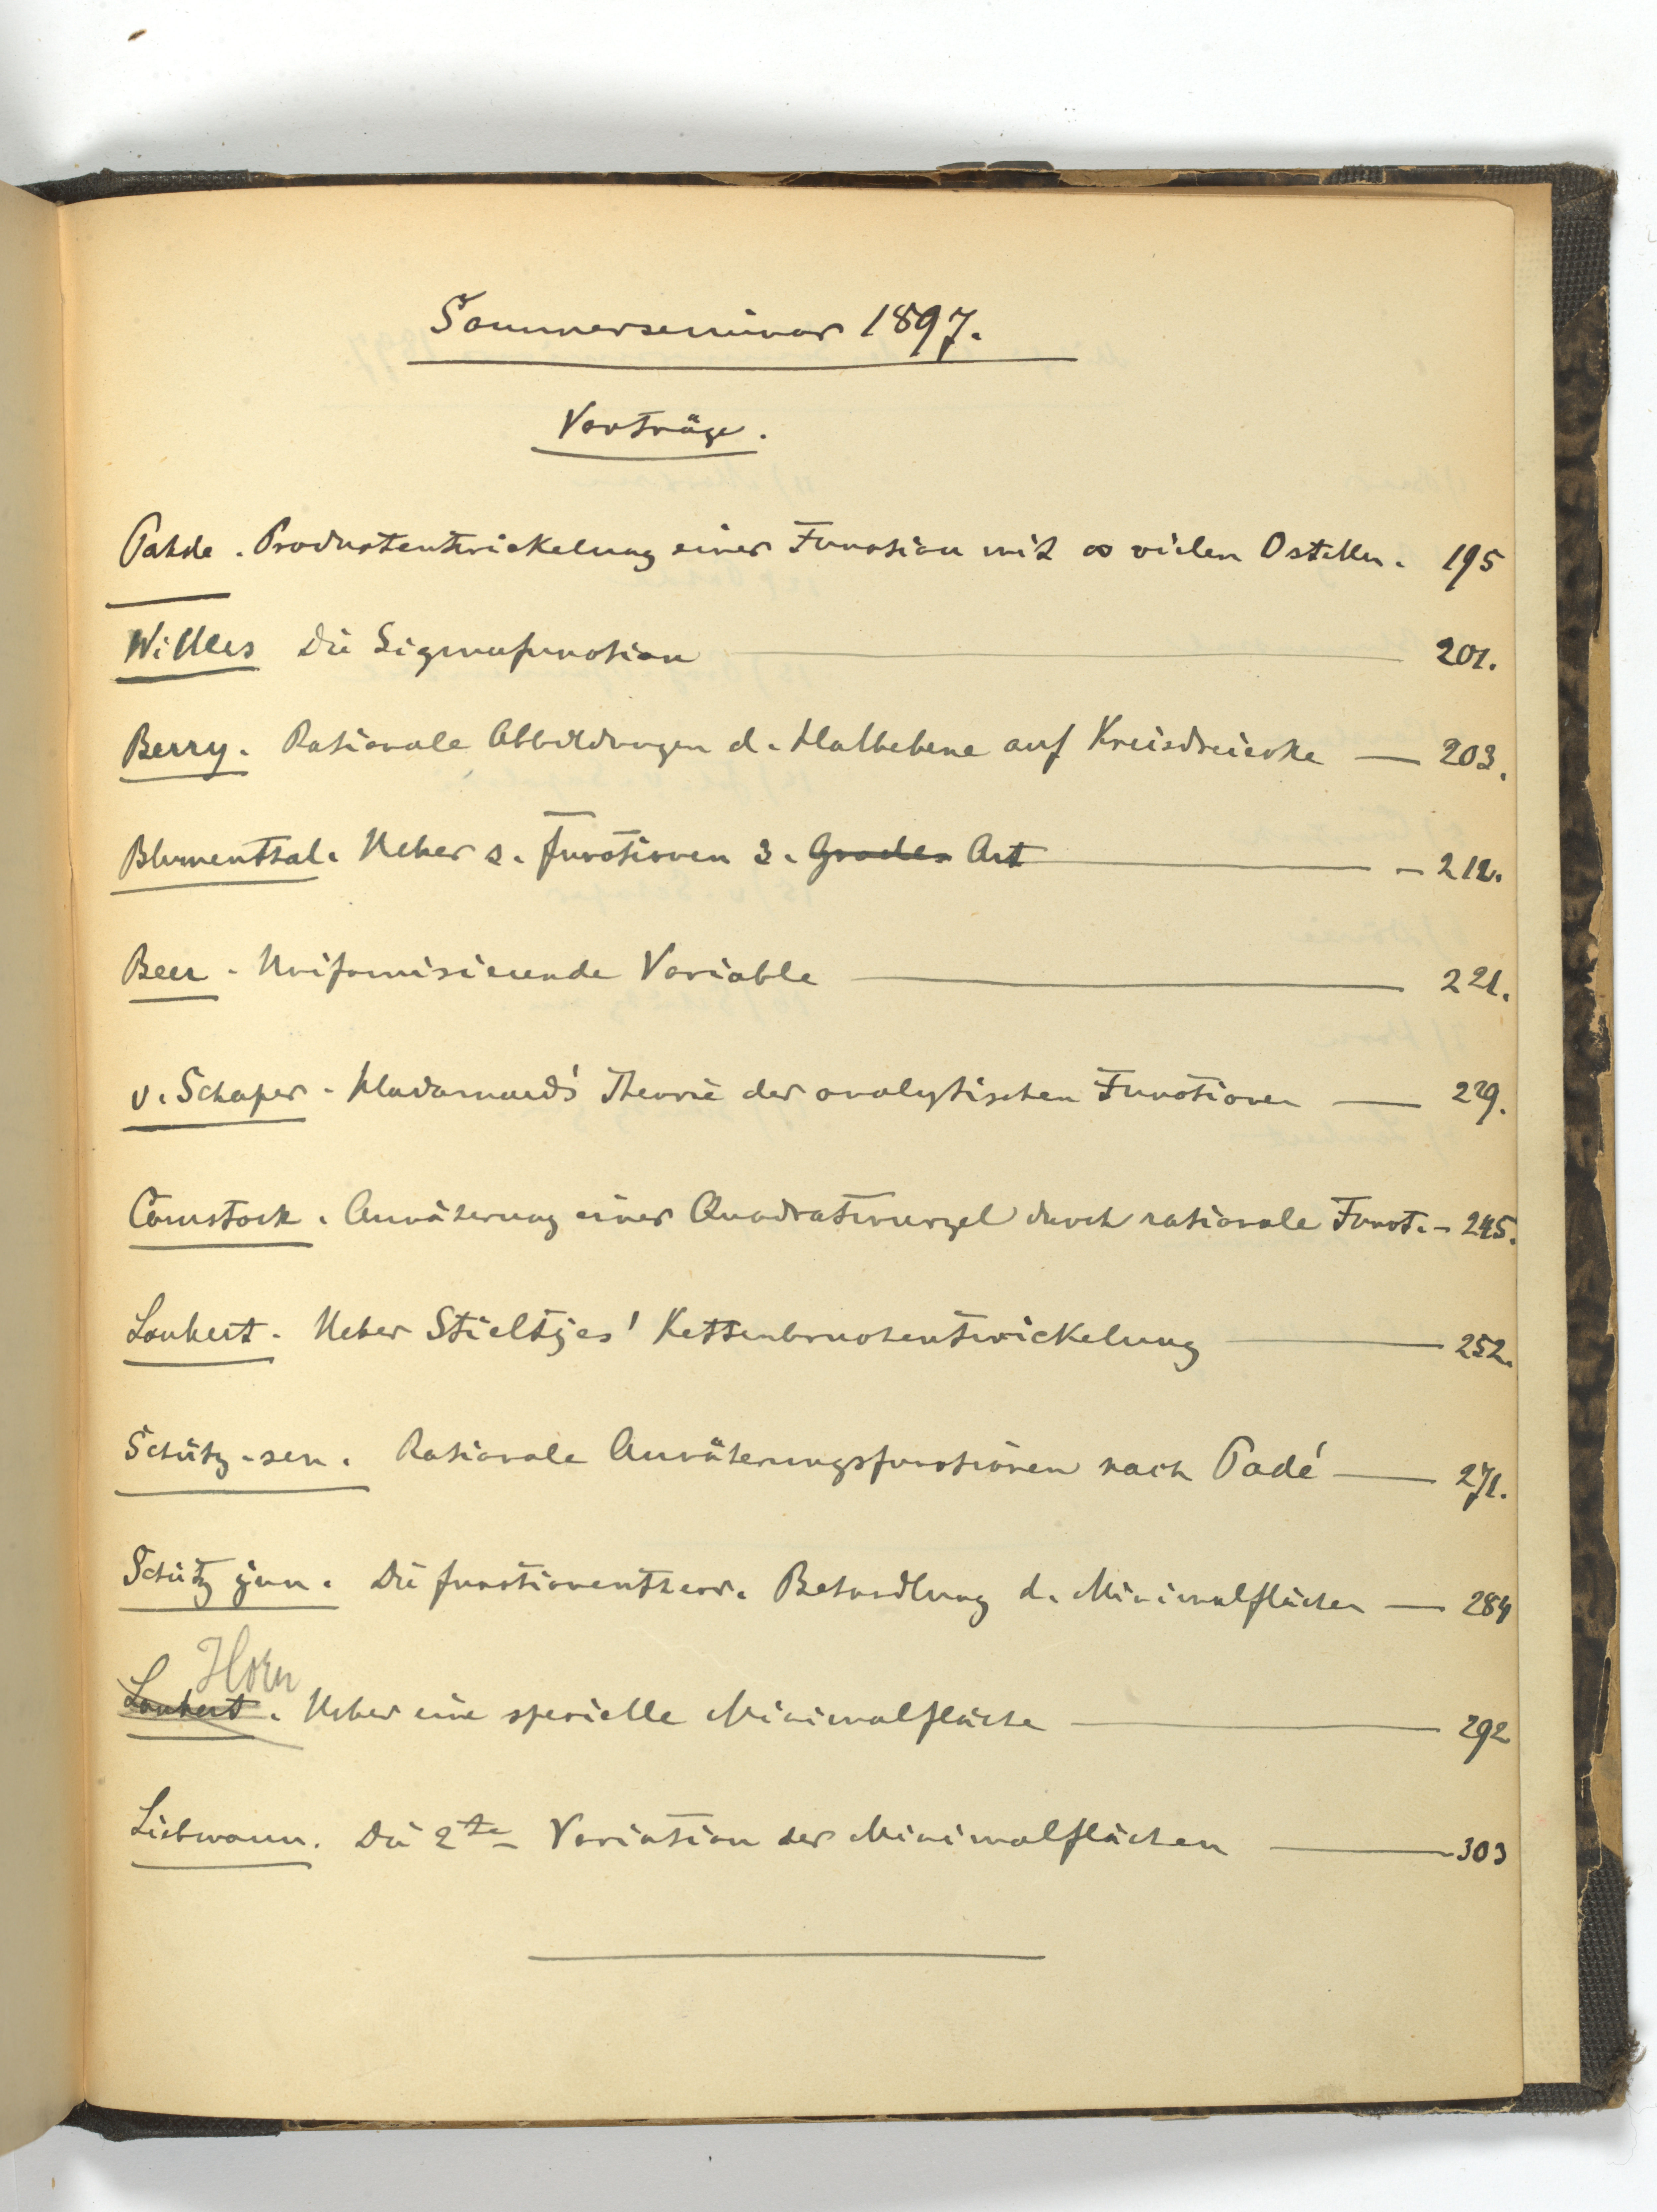 Sommerseminar 1897.
Vorträge.
Pahde. Productentwickelung einer Function mit ∞ vielen 0stellen. 195
Willers Die Sigmafunction 201.
Berry. Rationale Abbildungen d. Halbebene auf Kreisdreiecke — 203.
Blumenthal. Ueber s. functionen 3. Grades Art — 212.
Beer. Uniformisierende Variable 221.
v. Schaper. Hadamard's Theorie der analytischen Functionen — 229.
Comstock. Annäherung einer Quadratwurzel durch rationale Funct. — 245.
Lonhert. Ueber Stieltjes' Kettenbruchentwickelung 252.
Schütz sen. Rationale Annäherungsfunctionen nach Padé — 271.
Schütz jun. Die functionentheor. Behandlung d. Minimalflächen — 284
Horn
Lonhert. Ueber eine specielle Minimalfläche 292
Liebmann. Die 2te Variation der Minimalflächen 303